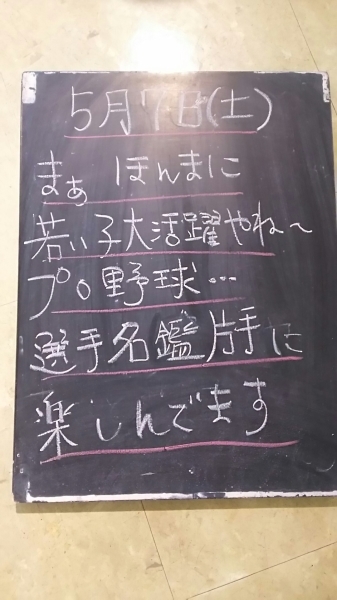 5月7日(土)
まぁ ほんまに
若い子大活躍やね〜
プロ野球…
選手名鑑片手に
楽しんでます